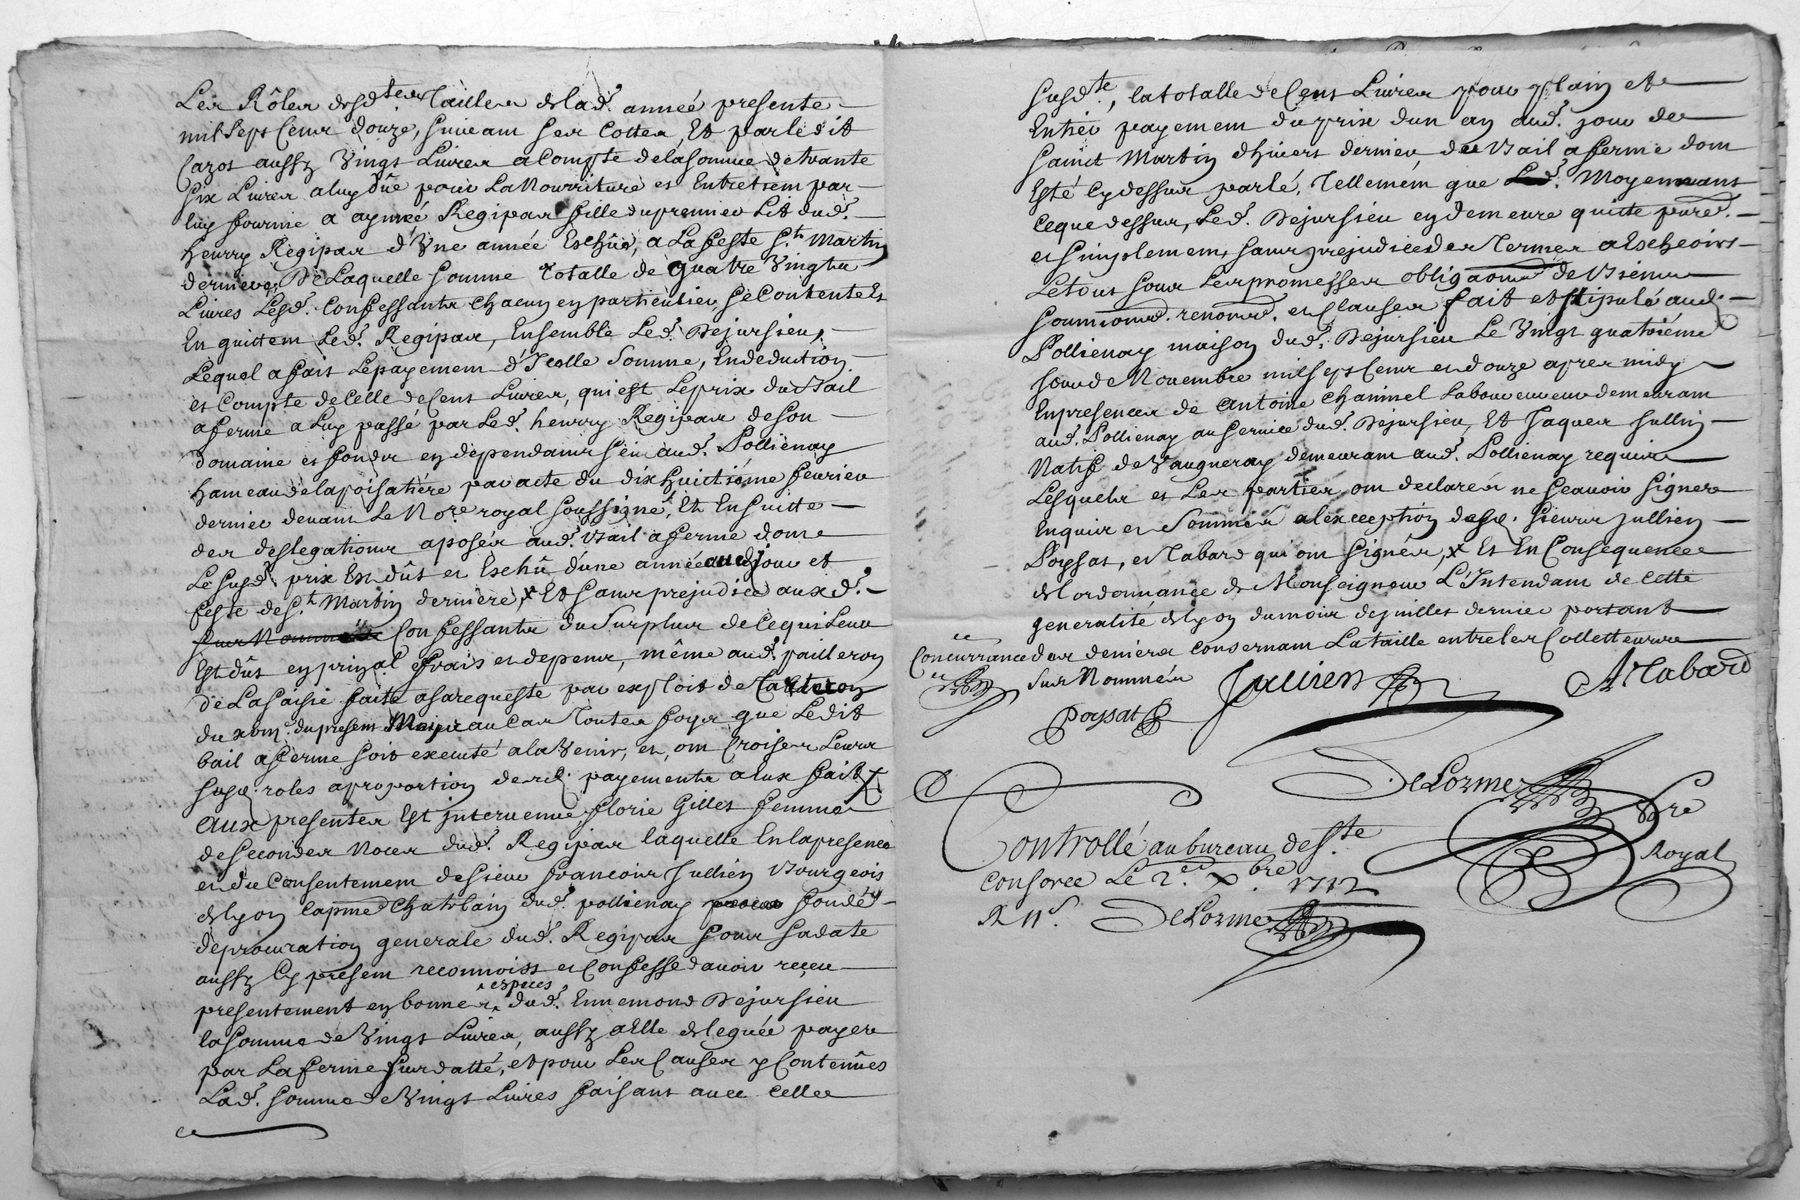 Les Rôles desdtes Tailles de lad. année presente
mil sept Cent douze, suivant ses Cottes, Et par ledit
Cazot aussy Vingt Livres a Compte de la Somme de trante
six Livres a luy dûe pour La Nourriture et Entretiem par
luy fournie a aymée Regipas fille du premier Lit dud.
henrry Regipas d'Une année Eschûe, a La feste St. Martin
derniere, De Laquelle somme totalle de quatre Vingts
Livres Lesd. Confessants Chacun en particulier, se Contentes Et
En quittem Led. Regipas, Ensemble Led. Dejussieu,
Lequel a fait Le payement d'Icelle Somme, En deduction
et Compte de Celle de Cent Livres, qui est Le prix du Bail
a ferme a Luy passé par Led. henrry Regipas de son
domaine et fondz en dependants seiz aud. Pollienay
hameau de la poisatière par acte du dix huictième feurier
dernier devant Le Nore. royal soussigné, Et En suitte
des deslegations aposés aud. Bail a ferme dont
Le susd. prix Est dûs et Eschû d'une année aud. jour et
feste de St. Martin derniere, x Et sans prejudice aux d.
sus Nommés Confessants du Surplus de Ce qui Leur
Est dûs en prinpal. frais et depens, même aud. pailleron
de La saisie faite a sa requeste par exploit de
du xvme. du presem Mois au cas Toutes foys que Ledit
bail a ferme soit executé a la Venir, et, ont Croisés Leurs
susd. roles a proportion desd. payements a Eux faits
Aux presentes Est Intervenue florie Gilles femme
de secondes Noces dud. Regipas laquelle En la presence
et du Consentement de sieur francois Jullien Bourgeois
de Lyon Capne. Chatelain dud. pollienay fondé
de procuration generale dud. Regipas sous sa date
aussy Cy presem reconnoist et Confesse d'avoir reçeu
presentement en bonnes especes dud. Ennemond Dejussieu
la somme de Vingt Livres, aussy a Elle deleguée payere
par La ferme sus datté, et pour Les Causes y Contenûes
Lad. somme de Vingt Livres faisant avec Celle
susdte., la totalle de Cent Livres pour plain et
Entier payement du prix d'un an aud. jour de
Sainct Martin d'hivert dernier, du Bail a ferme dont
Esté Cy dessus parlé, Tellement que Led. Moyennant
Ce que dessus, Led. Dejussieu en demeure quitte pured.
et simplement, sans prejudice des Termes a Escheoirs
Le tout sous Les promesses obligaons de Biens
soumions. renons. et Clauses fait et stipulé aud.
Pollienay maison dud. Dejussieu Le Vingt quatrième
jour de Novembre mil sept Cent et douze apres midy
En presences de Antoine Chaminel Laboureur demeurant
aud. Pollienay au service dud. Dejussieu, Et Jaques Jullin
Natif de Vaugneray demeurant aud. Pollienay requis
Lesquels et Les parties ont declarés ne sçavoir signer
Enquis et Sommés a l'exception desd. sieurs Jullien
Poysat, et Tabard qui ont signés, x Et En Consequence
de l'ordonnance de Monseigneur L'Intendant de Cette
generalité de Lyon du mois de juillet dernier portant
Concurrance des deniers Consernant La taille entre les Collecteurs
sus Nommés
Jullien
A Tabard
Poysat
DeLorme
Nre
Royal
Controllé au bureau de Ste
Consorce Le 2e. Xbre 1712
R 11s. DeLorme